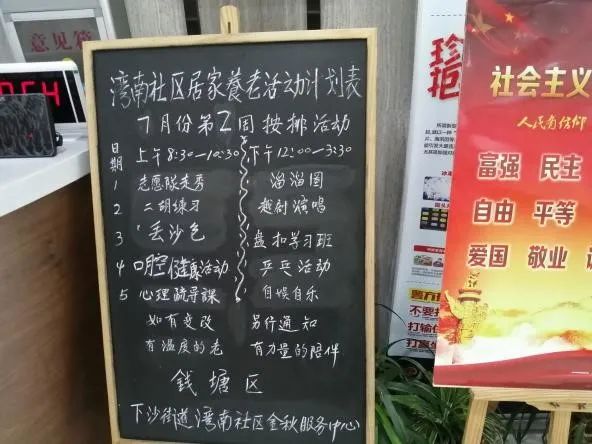 意见箱
湾南社区居家养老活动计划表
7月份第2周按排活动
日期 上午8:30—10:30 下午12:00—3:30
1 志愿队走秀 溜溜圈
2 二胡练习 越剧演唱
3 丢沙包 盘扣学习班
4 口腔健康活动 乒乓活动
5 心理疏导課 自娱自乐
如有变改 另行通知
有温度的老 有力量的陪伴
钱塘区
下沙街道湾南社区金秋服务(中心)
珍
拒
不要打
打输住
打赢坐
社会主义
人民有信仰
富强 民主
自由 平等
爱国 敬业